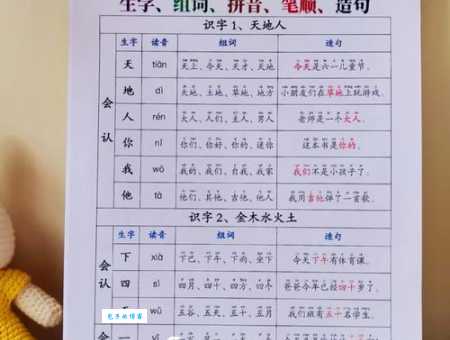 生字、组词、拼音、笔顺、造句
识字1、天地人
生字 读音 组词 造句
会认
天 tiān 天上、今天、天才、天地 今天是六一儿童节。
地 dì 天地、土地、草地、地方 小朋友们在草地上玩游戏。
人 rén 大人、人们、主人、男人 老师是一个大人。
你 nǐ 你们、你好、你的、迷你 这本书是你的。
我 wǒ 我的、我们、自我、我家 我们不是小孩子了。
他 tā 他们、其他、吉他、他人 我用吉他弹了一首歌。
识字2、金木水火土
生字 读音 组词 造句
会认
下 xià 下巴、下午、下雨、坐下 今天下午有体育课。
四 sì 四月、四十、四方、四个 爸爸今年已经四十岁了。
五谷、五天、五十、五月 我们班有五十名学生。
包子的博客